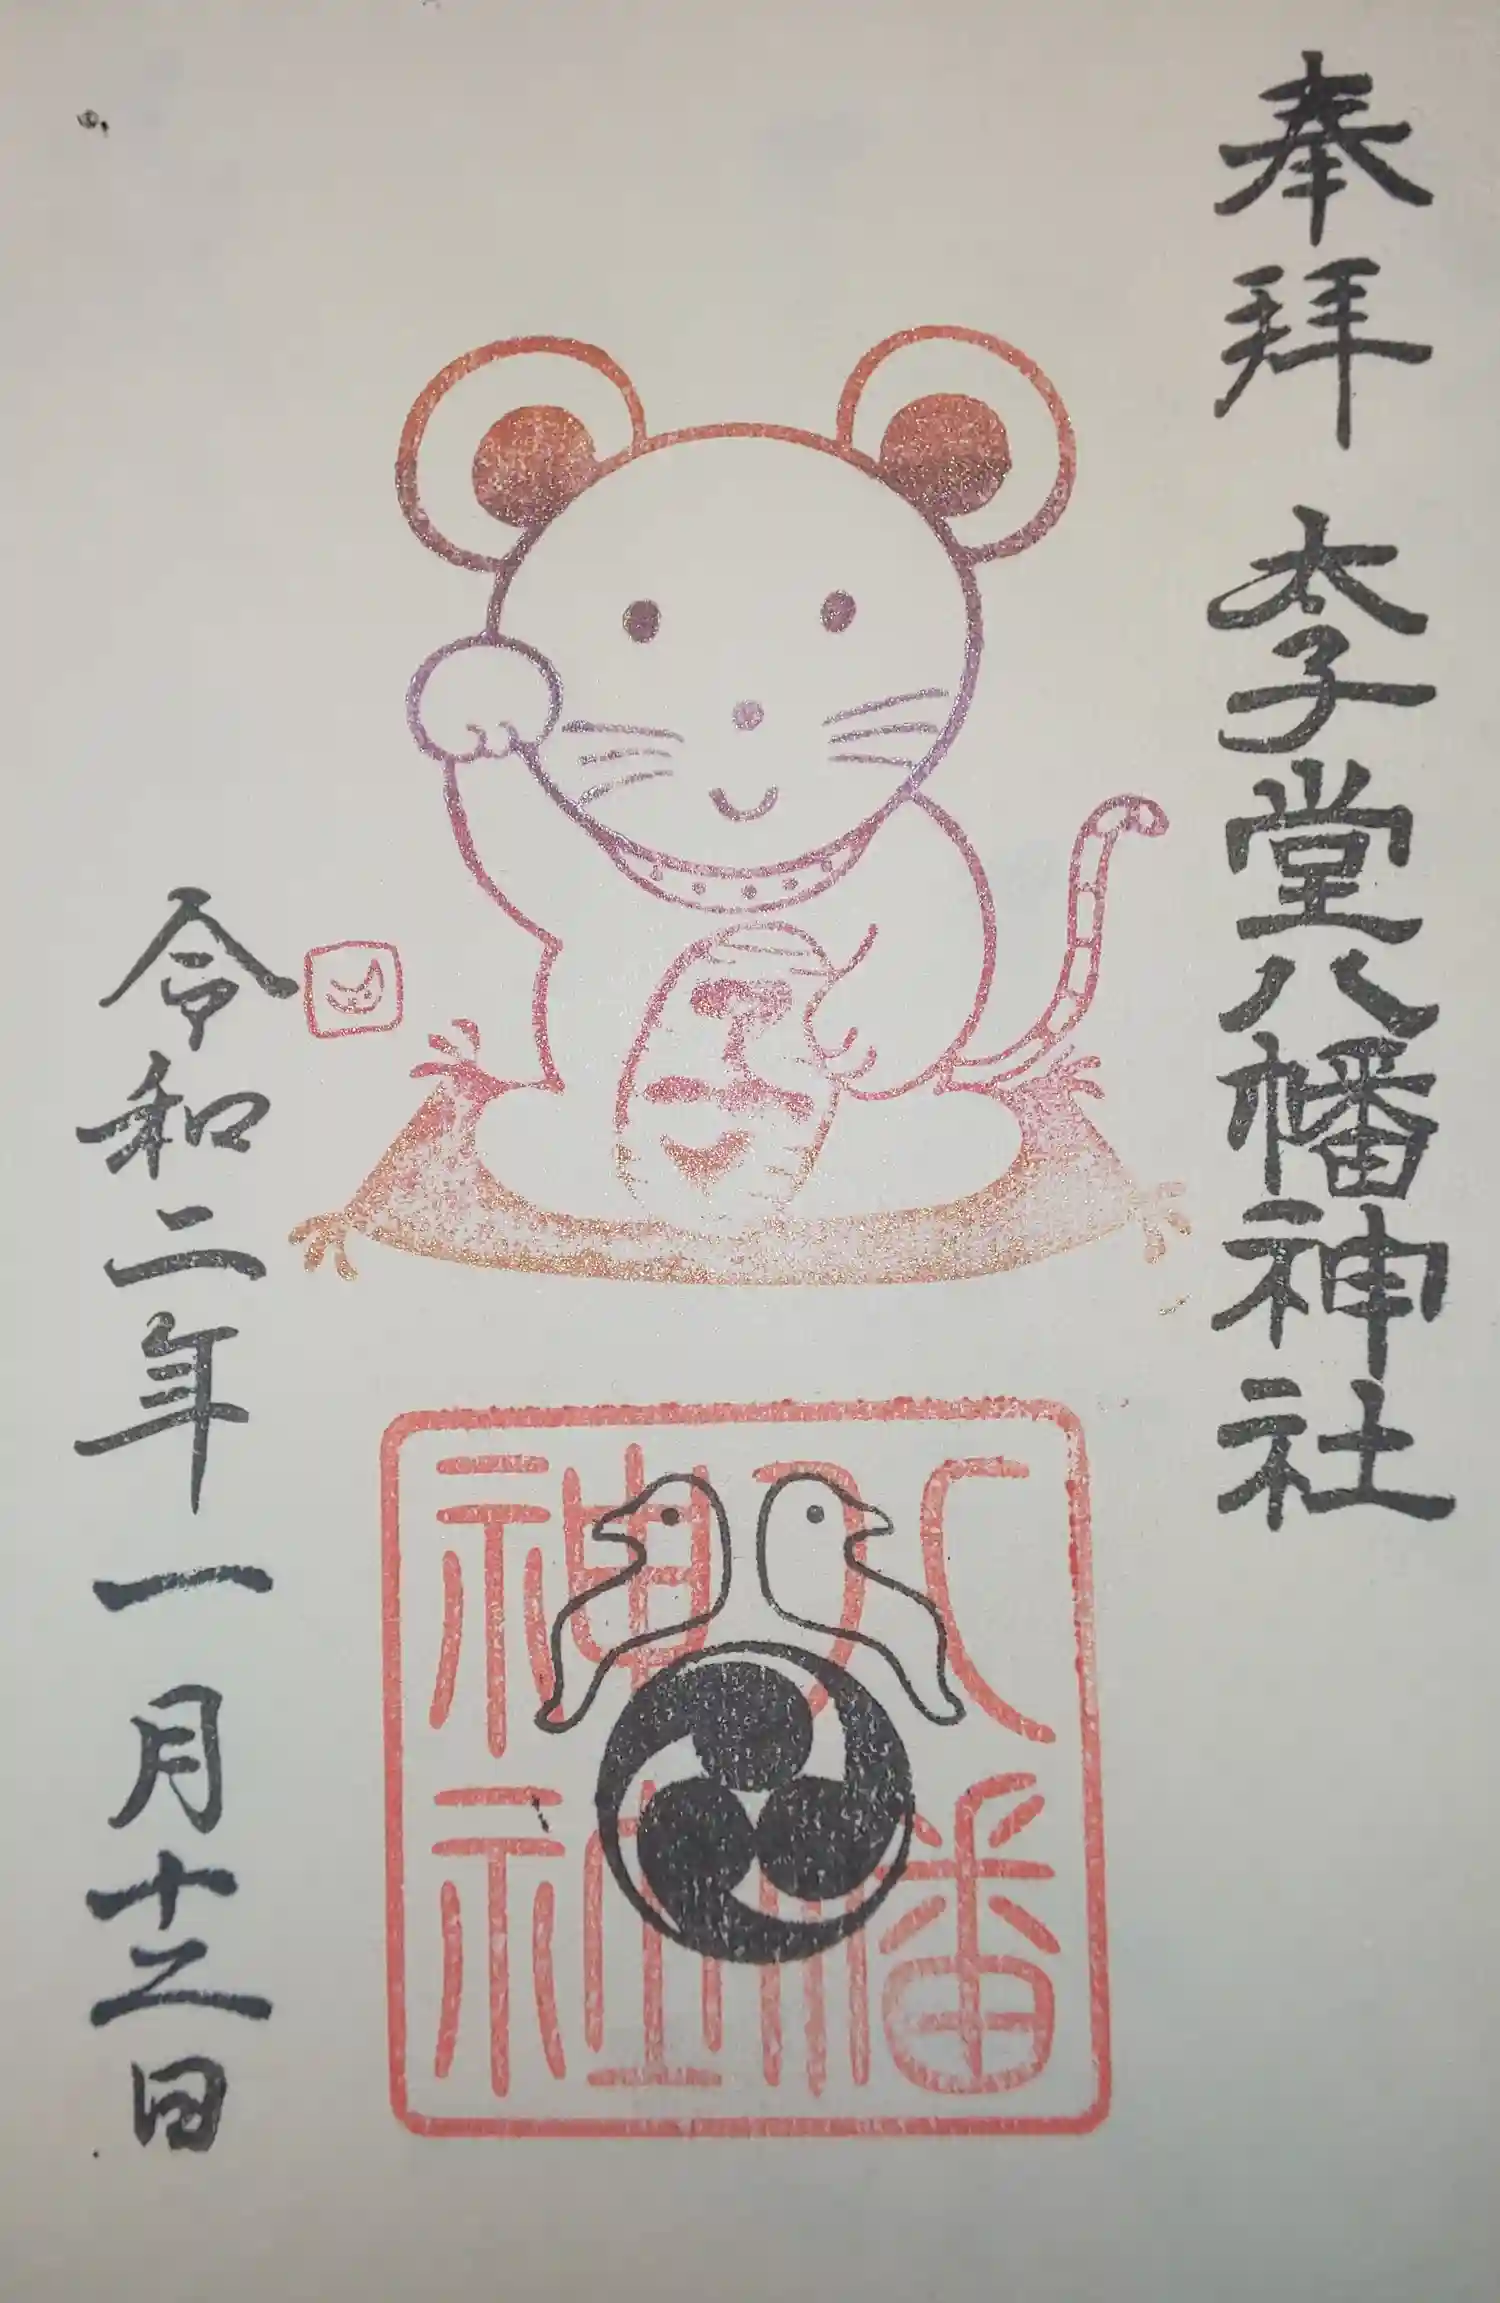 奉拝 太子堂八幡神社
八幡
神社
令和二年一月十二日